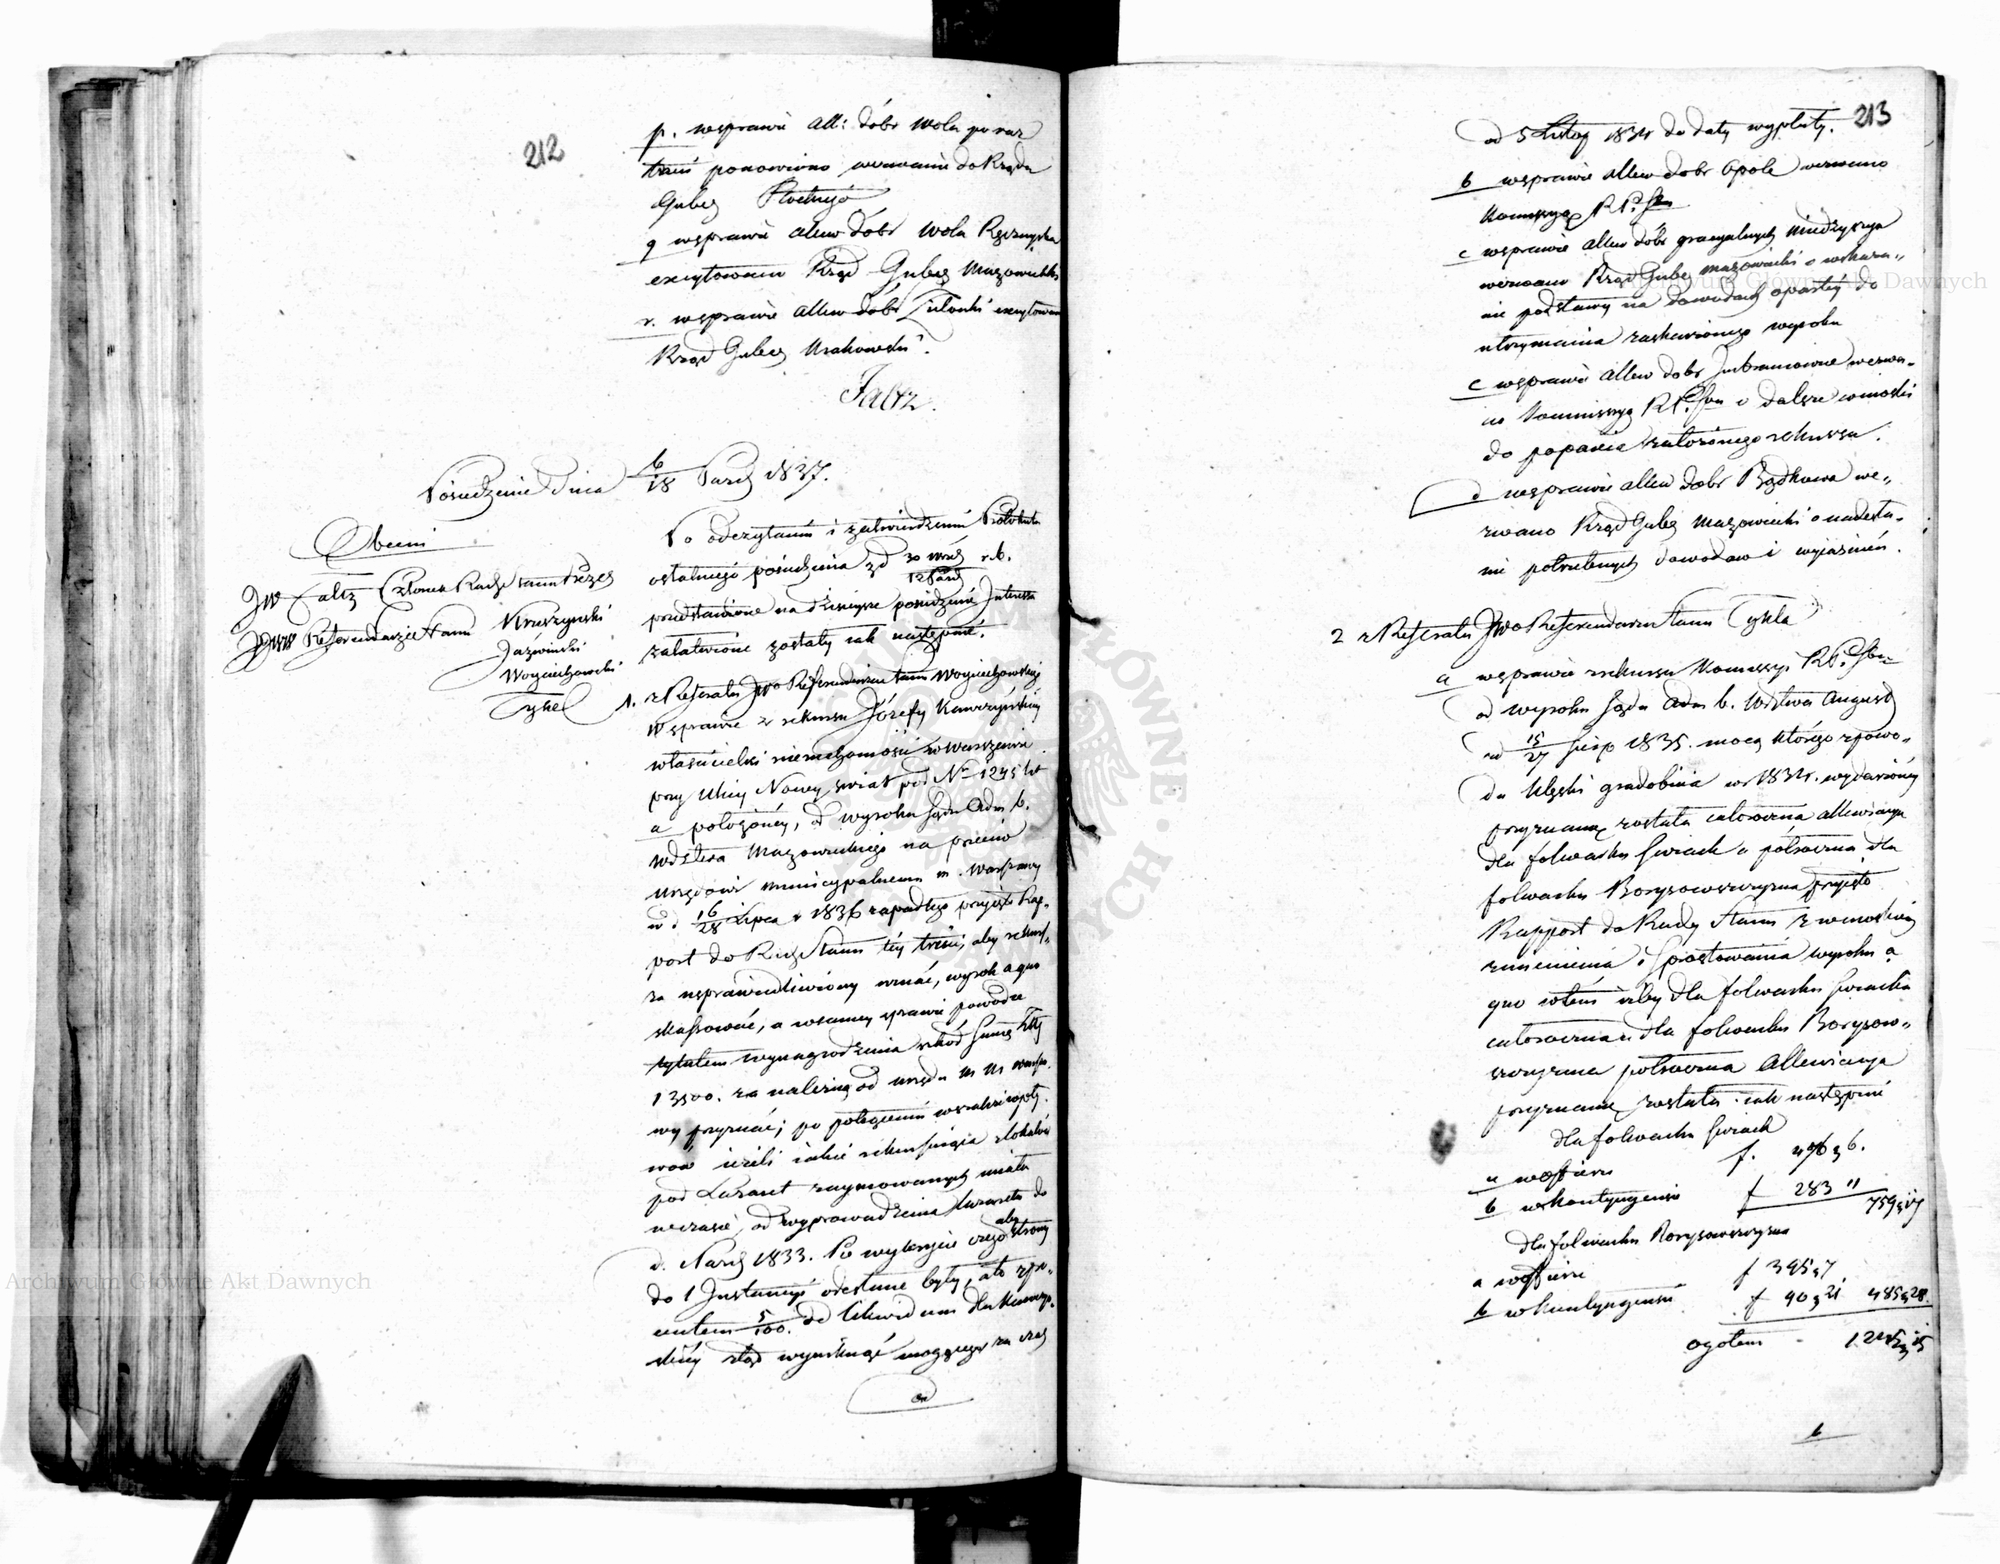 212
p. wsprawie all: dóbr Wola po raz
trzeci ponowiono wezwanie do Rządu
Guber Płockiego
q wsprawie allew dóbr Wola Pszczyńska
excytowano Rząd Guber Mazowiecki
r. wsprawie allew dóbr Zielonki excytowano
Rząd Guber Krakowski.
Faltz.
Posiedzenie dnia 6/18 Paźd 1837.
Obecni
JW Faltz Członek Rady Stanu Prezes
JJWW Referendarze Stanu Kruszyński
Jaźwiński
Woyciechowski
Tykel
Po odczytaniu i zatwierdzeniu Protokułu
ostatniego posiedzenia z d 30 Wrześ/12 Paźd r.b.
przedstawione na dzisieysze posiedzenie Interessa
załatwione zostały jak następnie.
1. z Referatu JWo Referendarza Stanu Woyciechowskiego
w sprawie z rekursu Józefy Kawczyńskiey
właścicielki nieruchomości w Warszawie
przy Ulicy Nowy świat pod No 1245 lit
a położoney, od wyroku Sądu Adm b.
Wdztwa Mazowieckiego na przeciw
Urzędowi Municypalnemu m. Warszawy
w d 16/28 Lipca r 1836 zapadłego przyjęto Rap-
port do Rady Stanu tey treści, aby rekurs
za usprawiedliwiony uznać, wyrok a quo
skassować, a w samey sprawie powódce
tytułem wynagrodzenia szkód Summę Złł
13500. za należną od urzędu M M Warsza.
wy przyznać; po potrąceniu wszakże wpły-
wów jeżeli jakie rekurująca z lokalów
pod Lazaret zaymowanych miała
w czasie, od wyprowadzenia Lazaretu do
d. Paźdz 1833. Po wykrycie czego aby strony
do 1 Instancyi odesłane były, a to z pro-
centem 5/100. od likwidum dla Kawczyń-
skiey ztąd wyniknąć mogącego za czas
od
213
od 5 Listop 1834 do daty wypłaty.
b wsprawie allew dobr Opole wezwano
Kommissyą R P. i Skarbu
c wsprawie allew dóbr gracyalnych Międzyrzyce
wezwano Rząd Guber Mazowiecki o wskaza-
nie podstawy na dowodach opartey do
utrzymania zaskarżonego wyroku
c wsprawie allew dobr Jubramowne wezwa-
no Kommissyą R P. i Skarbu o dalsze wnioski
do poparcia założonego rekursu.
d wsprawie allew dobr Bądkowa we-
zwano Rząd Guber Mazowiecki o nadesła-
nie potrzebnych dowodów i wyjaśnień.
2 z Referatu JWo Referendarza Stanu Tykla
a wsprawie rekursu Kommissyi R P. i Skarbu
od wyroku Sądu Adm b. Wdztwa August
w d 15/27 Sierp 1835. mocą którego z powo-
du klęski gradobicia w r 1834. wydarzoney
przyznaną została całoroczna allewiacya
dla folwarku Swiack a półroczna dla
folwarku Borysowszczyzna przyjęto
Rapport do Rady Stanu z wnioskiem
zmienienia i sprostowania wyroku a
quo w tem iżby dla folwarku Swiacka
całoroczna a dla folwarku Borysow-
szczyzna półroczna Allewiacya
przyznaną została jak następnie
dla folwarku Swiack
a w ofierze f. 476 g 6.
b w kontyngensie f 283 " 759
dla folwarku Borysowszczyzna
a w ofierze f 395 g 7
b w kontyngensie f 90 g 21 485 g 28.
ogołem - 1245
b
Archiwum Główne Akt Dawnych
Archiwum Główne Akt Dawnych